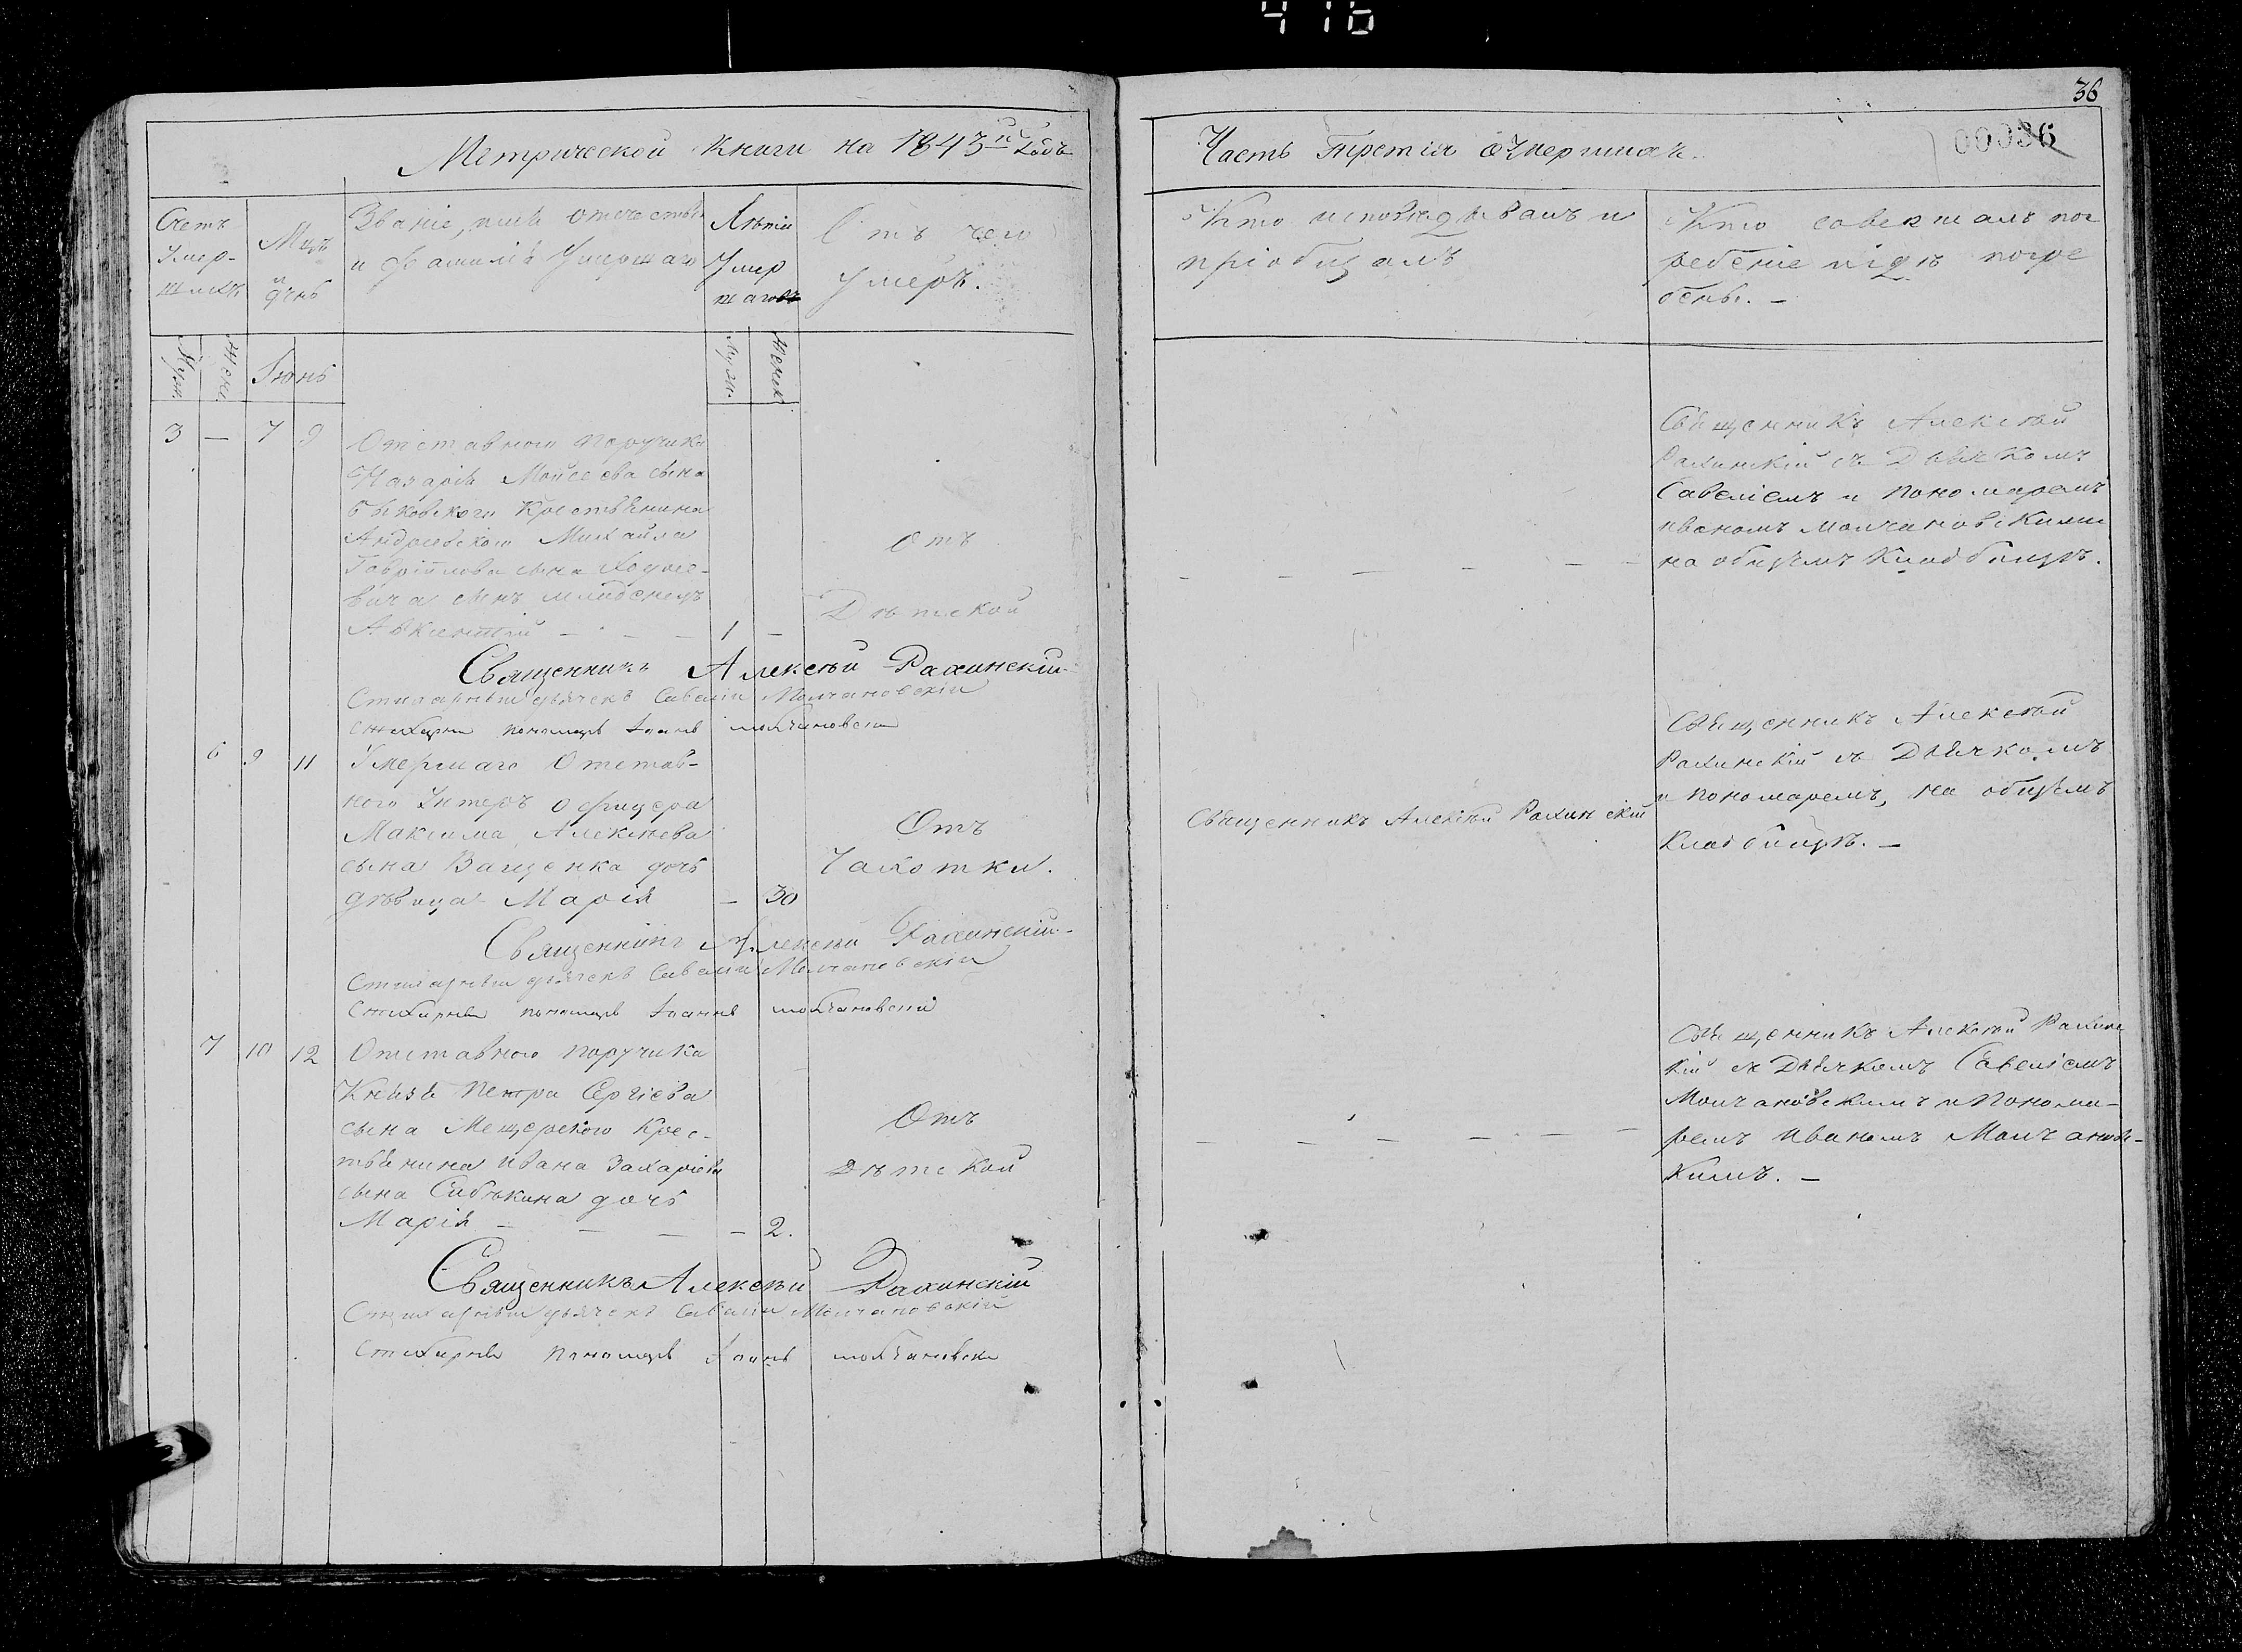 416
36
00036
Метрической книги на 1843й Годъ
Часть Третія о Умершихъ.
Счетъ Умер-шихъ
Мцъ и день
Званіе, имя отечество и Фамилія Умершаго
Лѣта Умершаго
Отъ чего умеръ.
Кто исповѣдывалъ и пріобщалъ
Кто совершалъ погребеніе и гдѣ погребены. –
Муж.
Женс.
Іюнь
Муж.
Женск.
3 – 7 9
Отставного Поручика
Назарія Моисеева сына
Быковскаго Крестьянина
Андреевского Михайла
Гавріилова сына
сынъ младенецъ
Авксентій – – – 1 –
Отъ
Дѣтской
– – – – – –
Священникъ Алексѣй
Рахинскій съ Дьячкомъ
Савеліемъ и Пономаремъ
Иваномъ Молчановскими
на общемъ Кладбищѣ.
Священникъ Алексѣй Рахинскій
Стихарный дьячекъ Савелій Молчановскій
Стихарный пономарь Іоаннъ Молчановскій
6 9 11
Умершаго Отстав-
ного Унтеръ Офицера
Максима Алексѣева
сына Ващенка дочь
дѣвица Марія – 30
Отъ
Чахотки.
Священникъ Алексѣй Рахинскій
Священникъ Алексѣй
Рахинскій съ Дьячкомъ
и Пономаремъ, на общемъ
Кладбищѣ. –
Священникъ Алексѣй Рахинскій
Стихарный дьячекъ Савелій Молчановскій
Стихарный пономарь Іоаннъ Молчановскій
7 10 12
Отставного Поручика
Князя Петра Сергіева
сына Мещерского Крес-
тьянина Ивана Захаріева
сына дочь
Марія – – – – 2.
Отъ
Дѣтской
– – – – – –
Священникъ Алексѣй Рахинс
кій съ Дьячкомъ Савеліемъ
Молчановскимъ и Понома-
ремъ Иваномъ Молчановс-
кимъ. –
Священникъ Алексѣй Рахинскій
Стихарный дьячекъ Савелій Молчановскій
Стихарный пономарь Іоаннъ Молчановскій